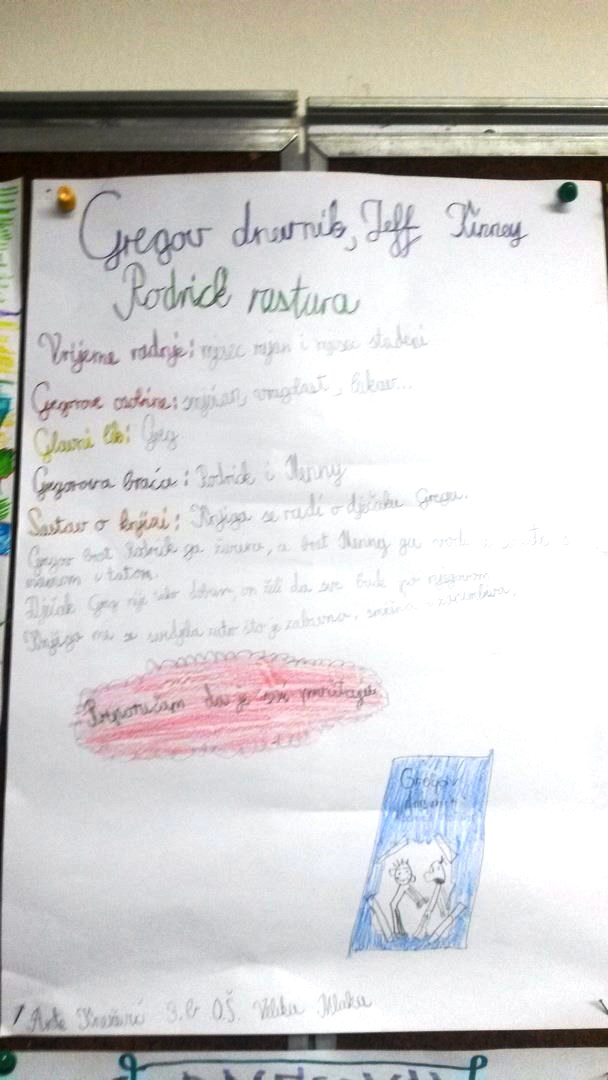 Gregov dnevnik, Jeff Kinney
Rodrick rastura
Vrijeme radnje: mjesec rujan i mjesec studeni
Gregorove osobine: smješan,
Glavni lik: Greg
Gregorova braća: Rodrick i Menny
Sastav o knjizi: Knjiga se radi o dječaku Gregu.
Gregov brat Rodrik ga , a brat Menny ga
mamom i tatom.
Dječak Greg nije tako dobar, on želi da sve bude po njegovom
Knjiga mi se svidjela zato što je zabavna, smešna i zanimljiva.
Preporučam da je svi pročitaju
Gregov
dnevnik
Ante 3.b OŠ. Velika Mlaka